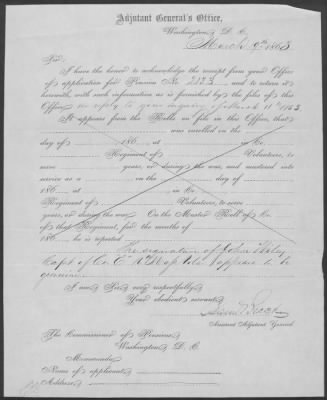 Adjutant General's Office,
Washington, D. C.
March 1863
Sir:
I have the honor to acknowledge the receipt from your Office
of application for Pension No. and to return it
herewith, with such information as is furnished by the files of this
Office, in reply to your inquiry of March 11th 1863
It appears from the Rolls on file in this Office, that
was enrolled on the
day of 186 , at in Co.
Regiment of Volunteers, to
serve years, or during the war, and mustered into
service as a on the day of
186 , at , in Co.
Regiment of Volunteers, to serve
years, or during the war. On the Muster Roll of Co.
of that Regiment, for the months of
186 he is reported
The signature of John
Capt of Co. Vols appears to be
genuine
I am Sir, very respectfully,
Your obedient servant,
Assistant Adjutant General.
The Commissioner of Pensions,
Washington, D. C.
Memoranda:
Name of applicant
Address